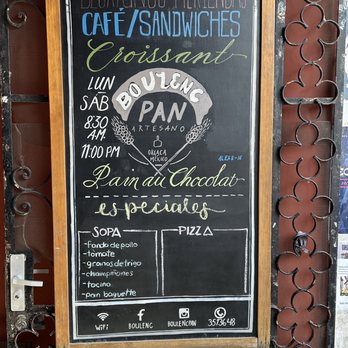 DESAYUNOS, MERIENDAS
CAFÉ/SANDWICHES
Croissant
LUN
SÁB
8:30
A.M.
11:00 PM
BOULENC
PAN
ARTESANO
OAXACA
MÉXICO
Pain du Chocolat
especiales
SOPA
-fondo de pollo
-tomate
-granos de trigo
-champiñones
-tocino
-pan baguette
PIZZA
WIFI
BOULENC
BOULENCPAN
3513648